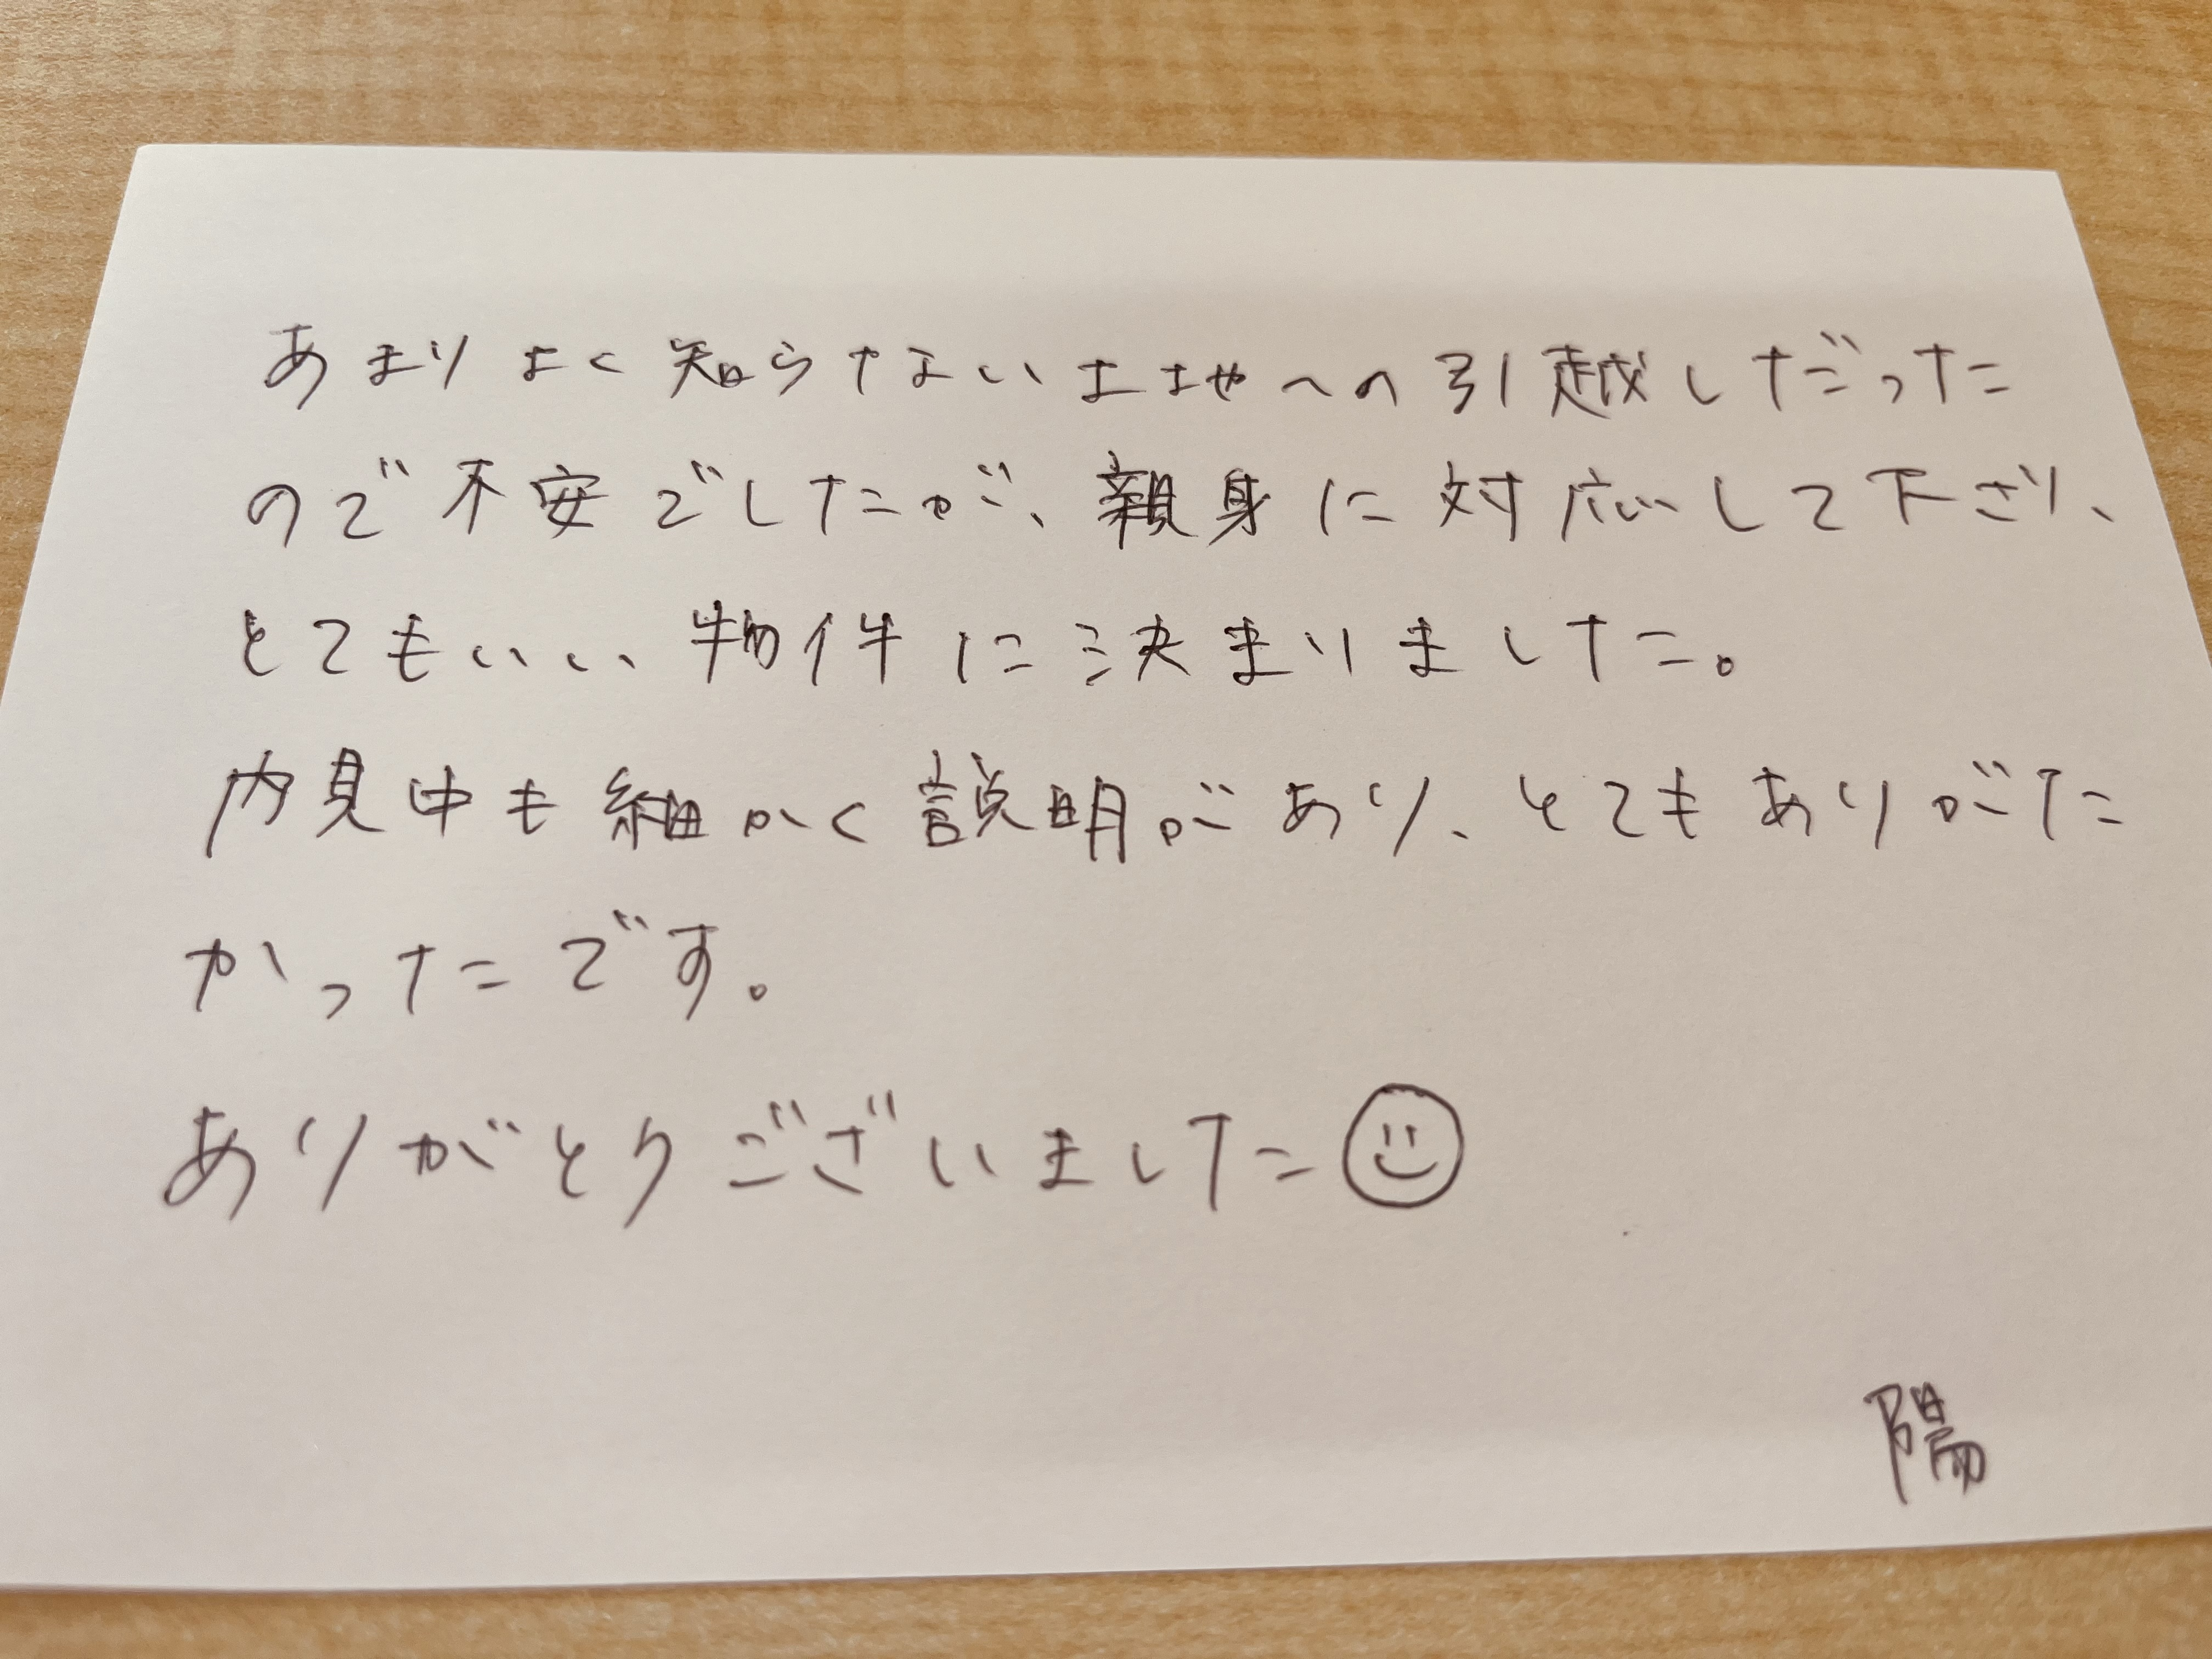 あまりよく知らない土地への引越しだった
ので不安でしたが、親身に対応して下さり、
とてもいい物件に決まりました。
内見中も細かく説明があり、とてもありがた
かったです。
ありがとうございました
陽